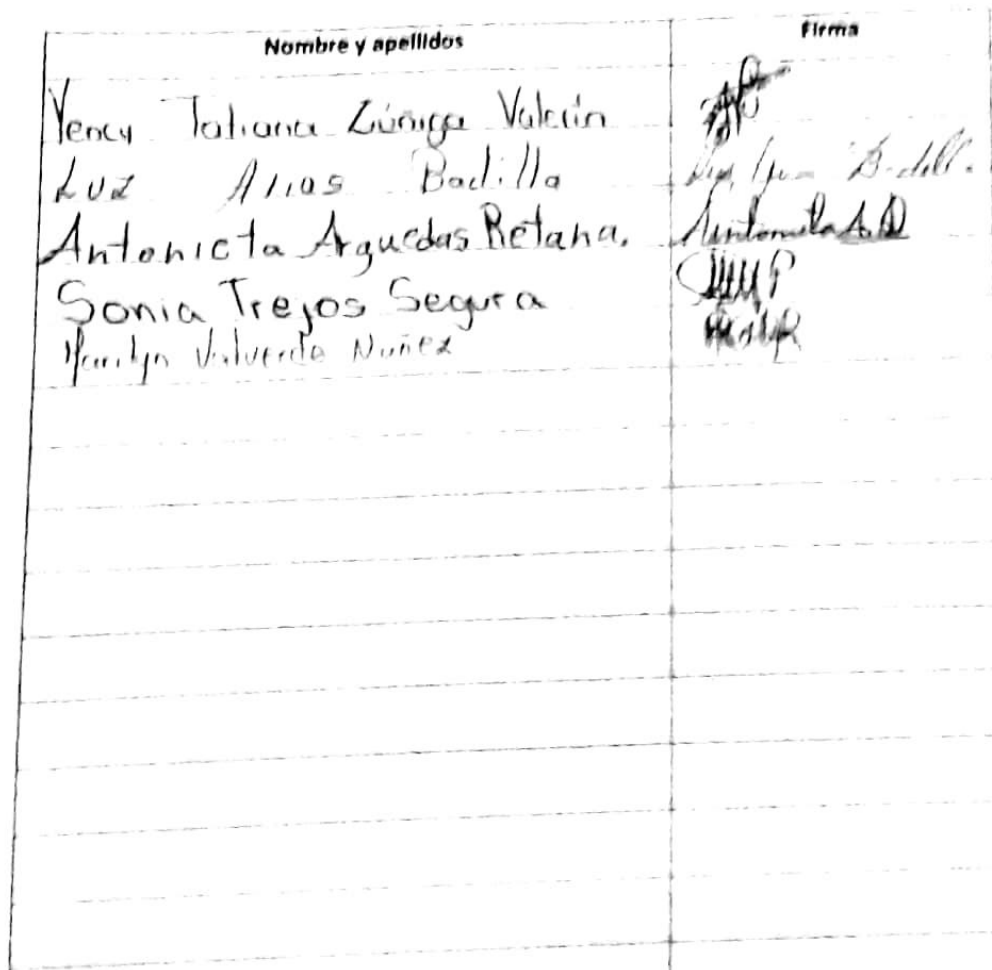 Nombre y apellidos Firma
Yency Tatiana Zúñiga
Luz Arias Badilla
Antonieta Arguedas Retana. Antonieta A.
Sonia Trejos Segura
Marilyn Valverde Nuñez